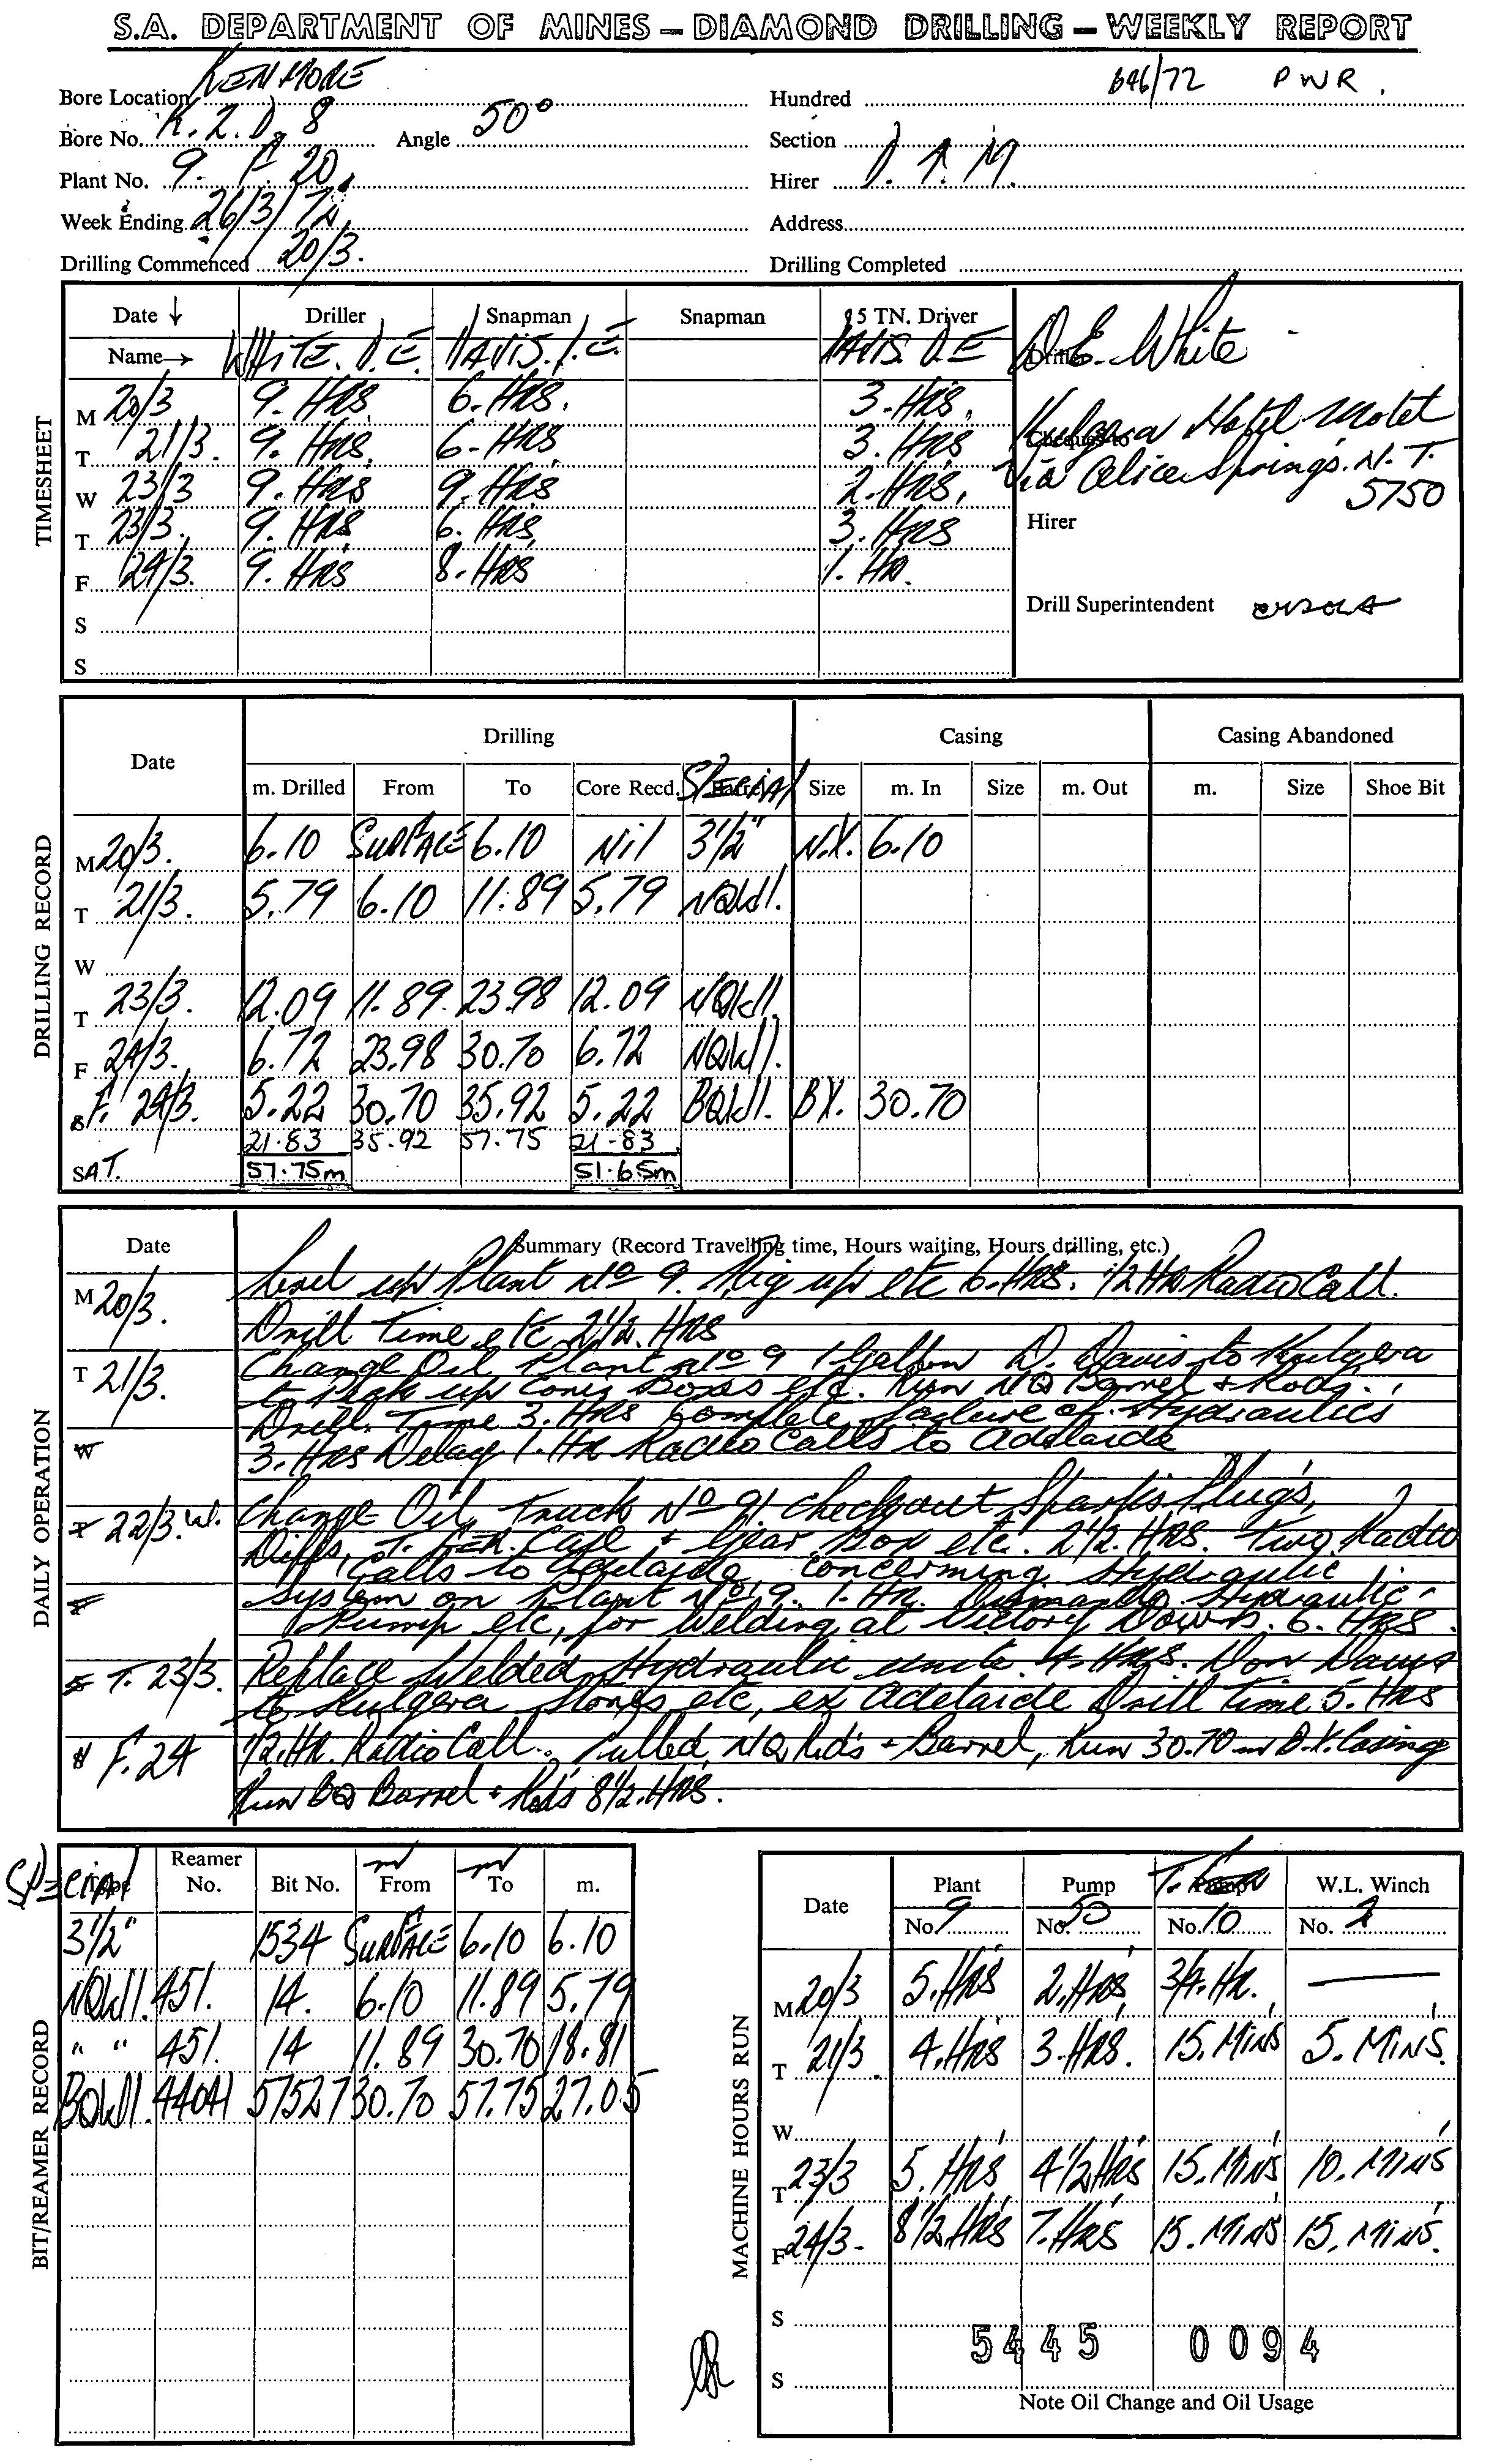 S.A. DEPARTMENT OF MINES — DIAMOND DRILLING — WEEKLY REPORT
Bore Location KENMORE Hundred 646/72 PWR.
Bore No. K.2.D. 8 Angle 50° Section
Plant No. 9. F. 20. Hirer D. A. M.
Week Ending 26/3/72 Address
Drilling Commenced 20/3. Drilling Completed
TIMESHEET
Date ↓ Driller Snapman Snapman 15 TN. Driver
Name→ WHITE. D.E. DAVIS. D.E. DAVIS D.E D.E. White
M 20/3 9. HRS 6. HRS. 3. HRS.
T 21/3. 9. HRS. 6. HRS 3. HRS
W 23/3 9. HRS 9. HRS 2. HRS.
T 23/3. 9. HRS. 6. HRS. 3. HRS
F 24/3. 9. HRS 8. HRS 1. HR.
S
S
Driller
Cheques to Kulgera Hotel Motel
Via Alice Springs. N.T.
5750
Hirer
Drill Superintendent
DRILLING RECORD
Date Drilling Casing Casing Abandoned
m. Drilled From To Core Recd. Special Barrel Size m. In Size m. Out m. Size Shoe Bit
M 20/3. 6.10 SURFACE 6.10 Nil 3½" N.X. 6.10
T 21/3. 5.79 6.10 11.89 5.79 NQWL.
W
T 23/3. 12.09 11.89 23.98 12.09 NQWL.
F 24/3. 6.72 23.98 30.70 6.72 NQWL.
S F. 24/3. 5.22 30.70 35.92 5.22 BQWL. BX. 30.70
21.83 35.92 57.75 21.83
SAT. 57.75m 51.65m
DAILY OPERATION
Date Summary (Record Travelling time, Hours waiting, Hours drilling, etc.)
M 20/3. Level up Plant No 9. Rig up etc 6. HRS. 1/2 HR Radio Call.
Drill Time etc 2 1/2. HRS
T 21/3. Change Oil Plant No 9 1 Gallon D. Davis to Kulgera
to Pick up Core Boxes etc. Run NQ Barrel + Rods.
Drill Time 3. HRS Complete failure of Hydraulics
W 3. HRS Delay 1. HR Radio Calls to Adelaide
T 22/3. W. Change Oil, Truck No 91. Check out Sparks Plugs,
Diffs, T. FER. Case + Gear Box etc. 2 1/2. HRS. Two Radio
Calls to Adelaide, concerning Hydraulic
F System on Plant No 9. 1. HR. Dismantle Hydraulic
Pump etc, for Welding at Victory Downs. 6. HRS.
S T. 23/3. Replace Welded Hydraulic unit 4. HRS. Don Davis
to Kulgera Stores etc, ex Adelaide Drill Time 5. HRS
S F. 24 1/2. HR. Radio Call. Pulled NQ Rods + Barrel, Run 30.70 m B.X. Casing
Run BQ Barrel + Rods 8 1/2. HRS.
BIT/REAMER RECORD
Special Type Reamer No. Bit No. m From m To m.
3½" 1534 SURFACE 6.10 6.10
NQWL 451. 14. 6.10 11.89 5.79
" " 451. 14 11.89 30.70 18.81
BQWL. 44041 57527 30.70 57.75 27.05
MACHINE HOURS RUN
Date Plant Pump W.L. Winch
No. 9 No. 50 No. 10 No. 2
M 20/3 5. HRS 2. HRS. 3/4. HR. —
T 21/3 4. HRS 3. HRS. 15. MINS 5. MINS.
W
T 23/3 5. HRS 4 1/2 HRS 15. MINS 10. MINS
F 24/3. 8 1/2. HRS 7. HRS 15. MINS 15. MINS.
S
5445 0094
S
Note Oil Change and Oil Usage